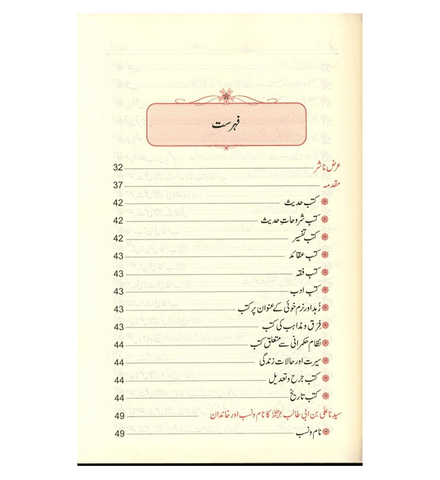 فہرست
عرض ناشر 32
مقدمہ 37
کتب حدیث 42
کتب شروحات حدیث 42
کتب تفسیر 42
کتب عقائد 43
کتب فقہ 43
کتب ادب 43
زہد اور نرم خوئی کے عنوان پر کتب 43
فرق و مذاہب کی کتب 43
نظام حکمرانی سے متعلق کتب 44
سیرت اور حالات زندگی 44
کتب جرح و تعدیل 44
کتب تاریخ 44
سیدنا علی بن ابی طالب ﷜ کا نام و نسب اور خاندان 49
نام و نسب 49